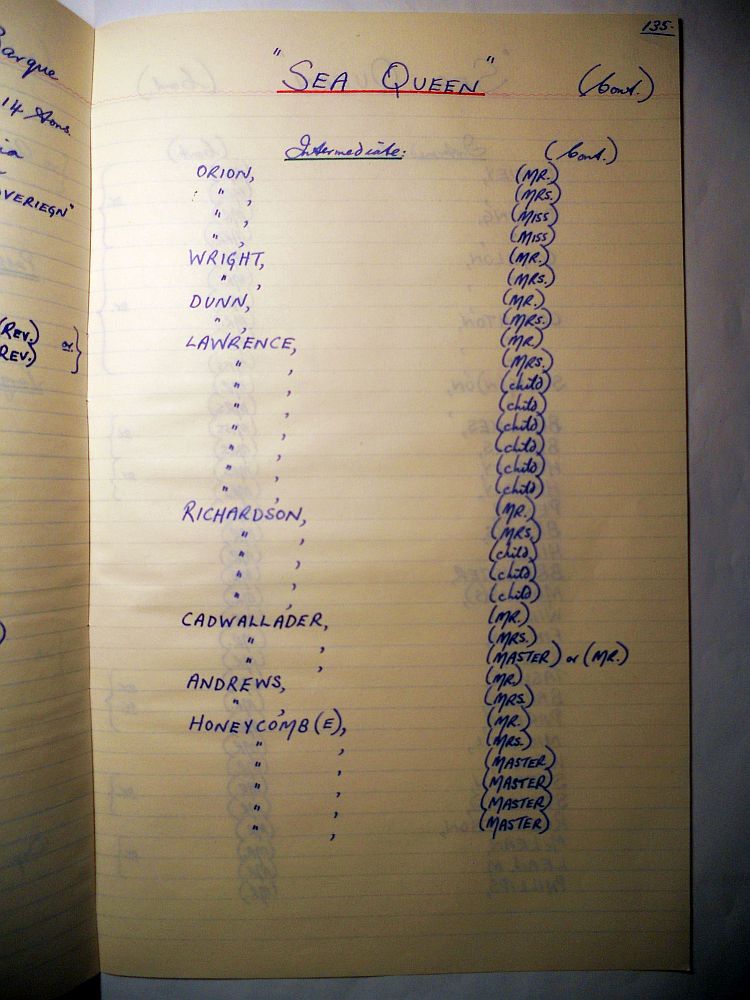 Barque
14 Tons.
ia
VERIEGN"
(REV.) or
REV.)
135.
"SEA QUEEN" (Cont.)
Intermediate: (Cont.)
ORION, (MR.)
" , (MRS.)
" , (MISS)
" , (MISS)
WRIGHT, (MR.)
" , (MRS.)
DUNN, (MR.)
" , (MRS.)
LAWRENCE, (MR.)
" , (MRS.)
" , (child)
" , (child)
" , (child)
" , (child)
" , (child)
" , (child)
RICHARDSON, (MR.)
" , (MRS.)
" , (child)
" , (child)
" , (child)
CADWALLADER, (MR.)
" , (MRS.)
" , (MASTER) or (MR.)
ANDREWS, (MR.)
" , (MRS.)
HONEYCOMB(E), (MR.)
" , (MRS.)
" , (MASTER)
" , (MASTER)
" , (MASTER)
" , (MASTER)